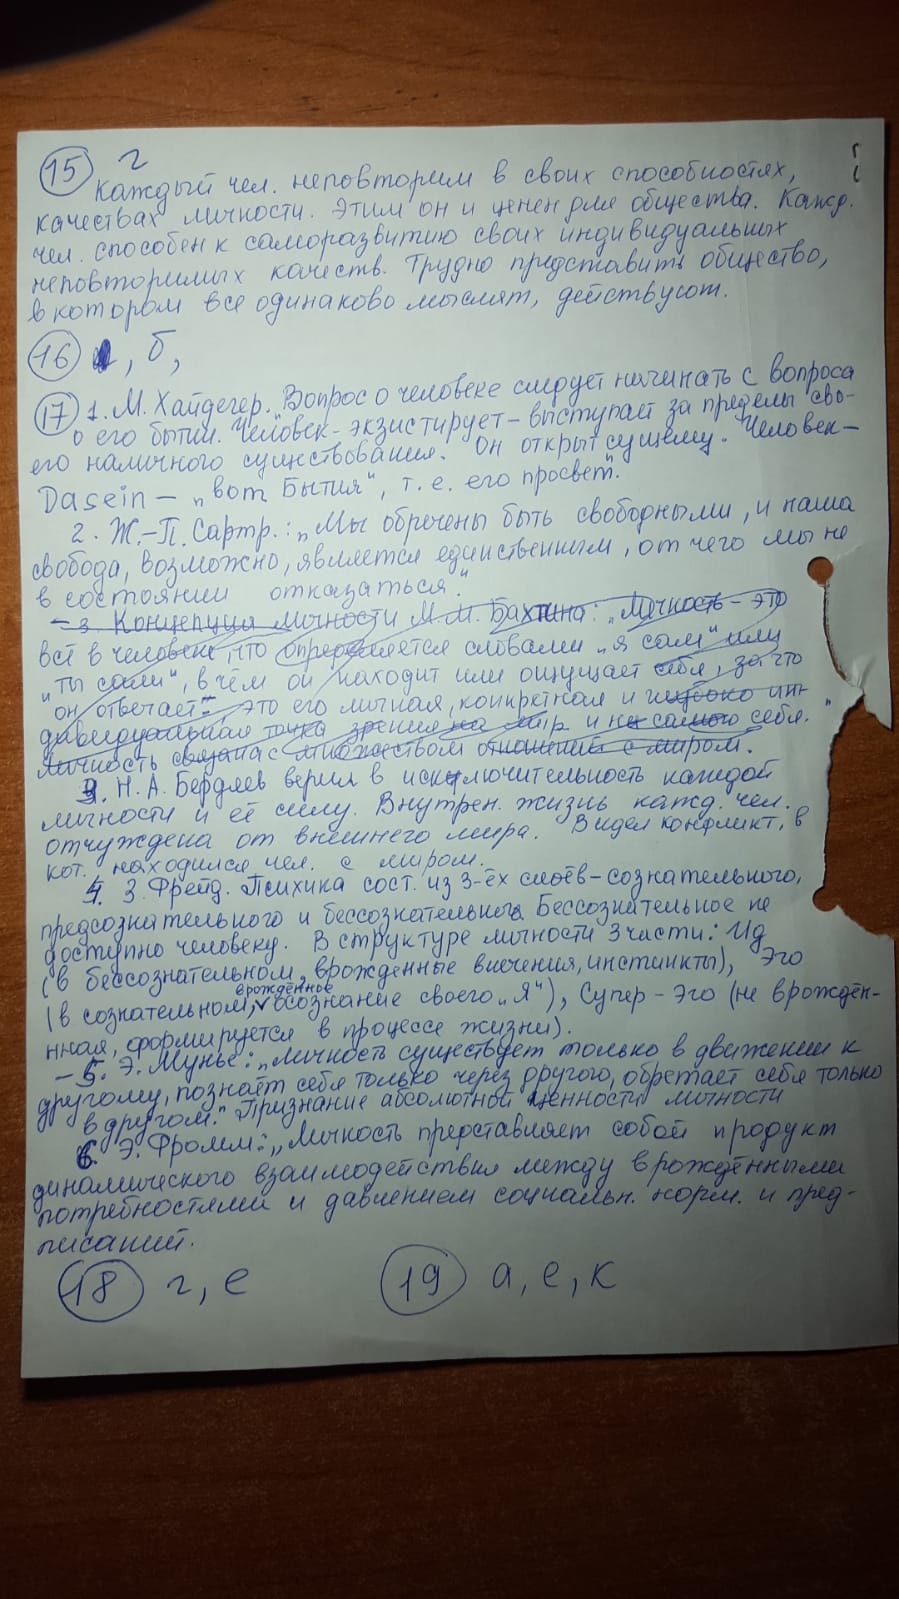 15 г
Каждый чел. неповторим в своих способностях,
качествах личности. Этим он и ценен для общества. Кажд.
чел. способен к саморазвитию своих индивидуальных
неповторимых качеств. Трудно представить общество,
в котором все одинаково мыслят, действуют.
16 , б,
17 1. М. Хайдегер. „Вопрос о человеке следует начинать с вопроса
о его бытии. Человек - экзистирует - выступает за пределы сво-
его наличного существования. Он открыт сущему. Человек -
Dasein - „вот Бытия", т.е. его просвет".
2. Ж.-П. Сартр.: „Мы обречены быть свободными, и наша
свобода, возможно, является единственным, от чего мы не
в состоянии отказаться."
3. Концепция личности М.М. Бахтина: „Личность - это
всё в человеке, что определяется словами „я сам" или
„ты сам", в чём он находит или ощущает себя, за что
он отвечает", это его личная, конкретная и глубоко ин-
дивидуальная точка зрения на мир и на самого себя."
Личность связана с множеством отношений с миром.
3. Н.А. Бердяев верил в исключительность каждой
личности и её силу. Внутрен. жизнь кажд. чел.
отчуждена от внешнего мира. Видел конфликт, в
кот. находился чел. с миром.
4. З. Фрейд. Психика сост. из 3-ёх слоёв - сознательного,
предсознательного и бессознательного. Бессознательное не
доступно человеку. В структуре личности 3 части: Ид
(в бессознательном, врожденные влечения, инстинкты), Эго
врождённое
(в сознательном, осознание своего „Я"), Супер-Эго (не врождён-
нная, формируется в процессе жизни).
- 5. Э. Мунье: „Личность существует только в движении к
другому, познаёт себя только через другого, обретает себя только
в другом." Признание абсолютной ценности личности
6. Э. Фромм: „Личность представляет собой продукт
динамического взаимодействия между врождёнными
потребностями и давлением социальн. норм. и пред-
писаний.
18 г, е 19 а, е, к